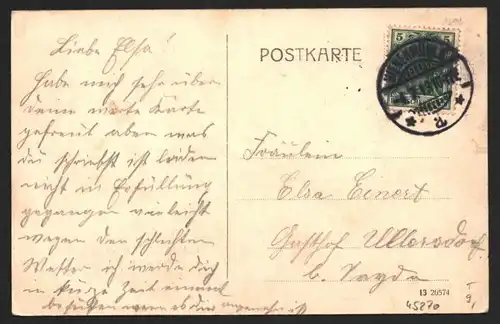 Liebe Elsa!
Habe mich sehr über
deine werte Karte
gefreut aber was
du schriebst ist leider
nicht in Erfüllung
gegangen vielleicht
wegen den schlechten
Wetter ich werde dich
in kurze Zeit einmal
besuchen wenn es dir angenehm ist
POSTKARTE
5 5
Fräulein
Elsa Einert
Gasthof Ullersdorf
b. Sayda
13 20574
45270